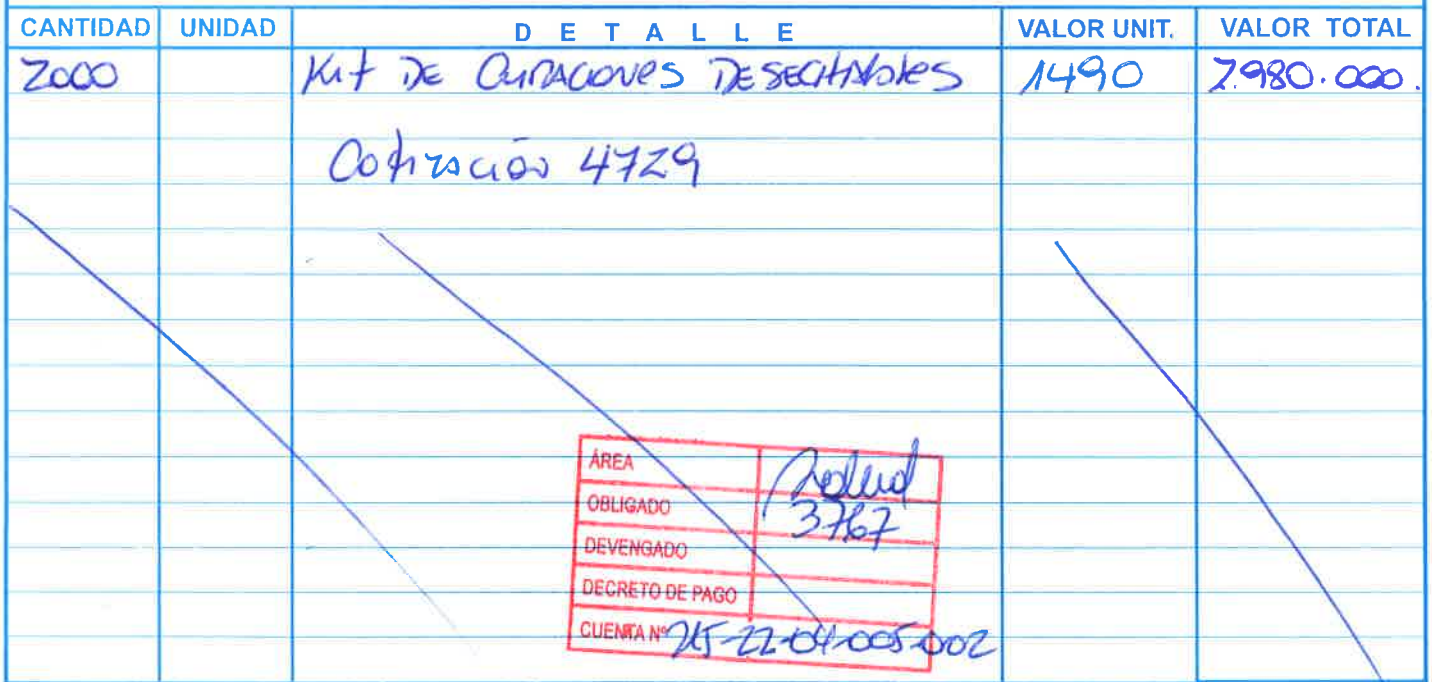 CANTIDAD UNIDAD DETALLE VALOR UNIT. VALOR TOTAL
2000 Kit DE CURACIONES DESECHABLES 1490 2.980.000.
Cotización 4729
ÁREA Salud
OBLIGADO 3767
DEVENGADO
DECRETO DE PAGO
CUENTA Nº 215-22-04-005-002